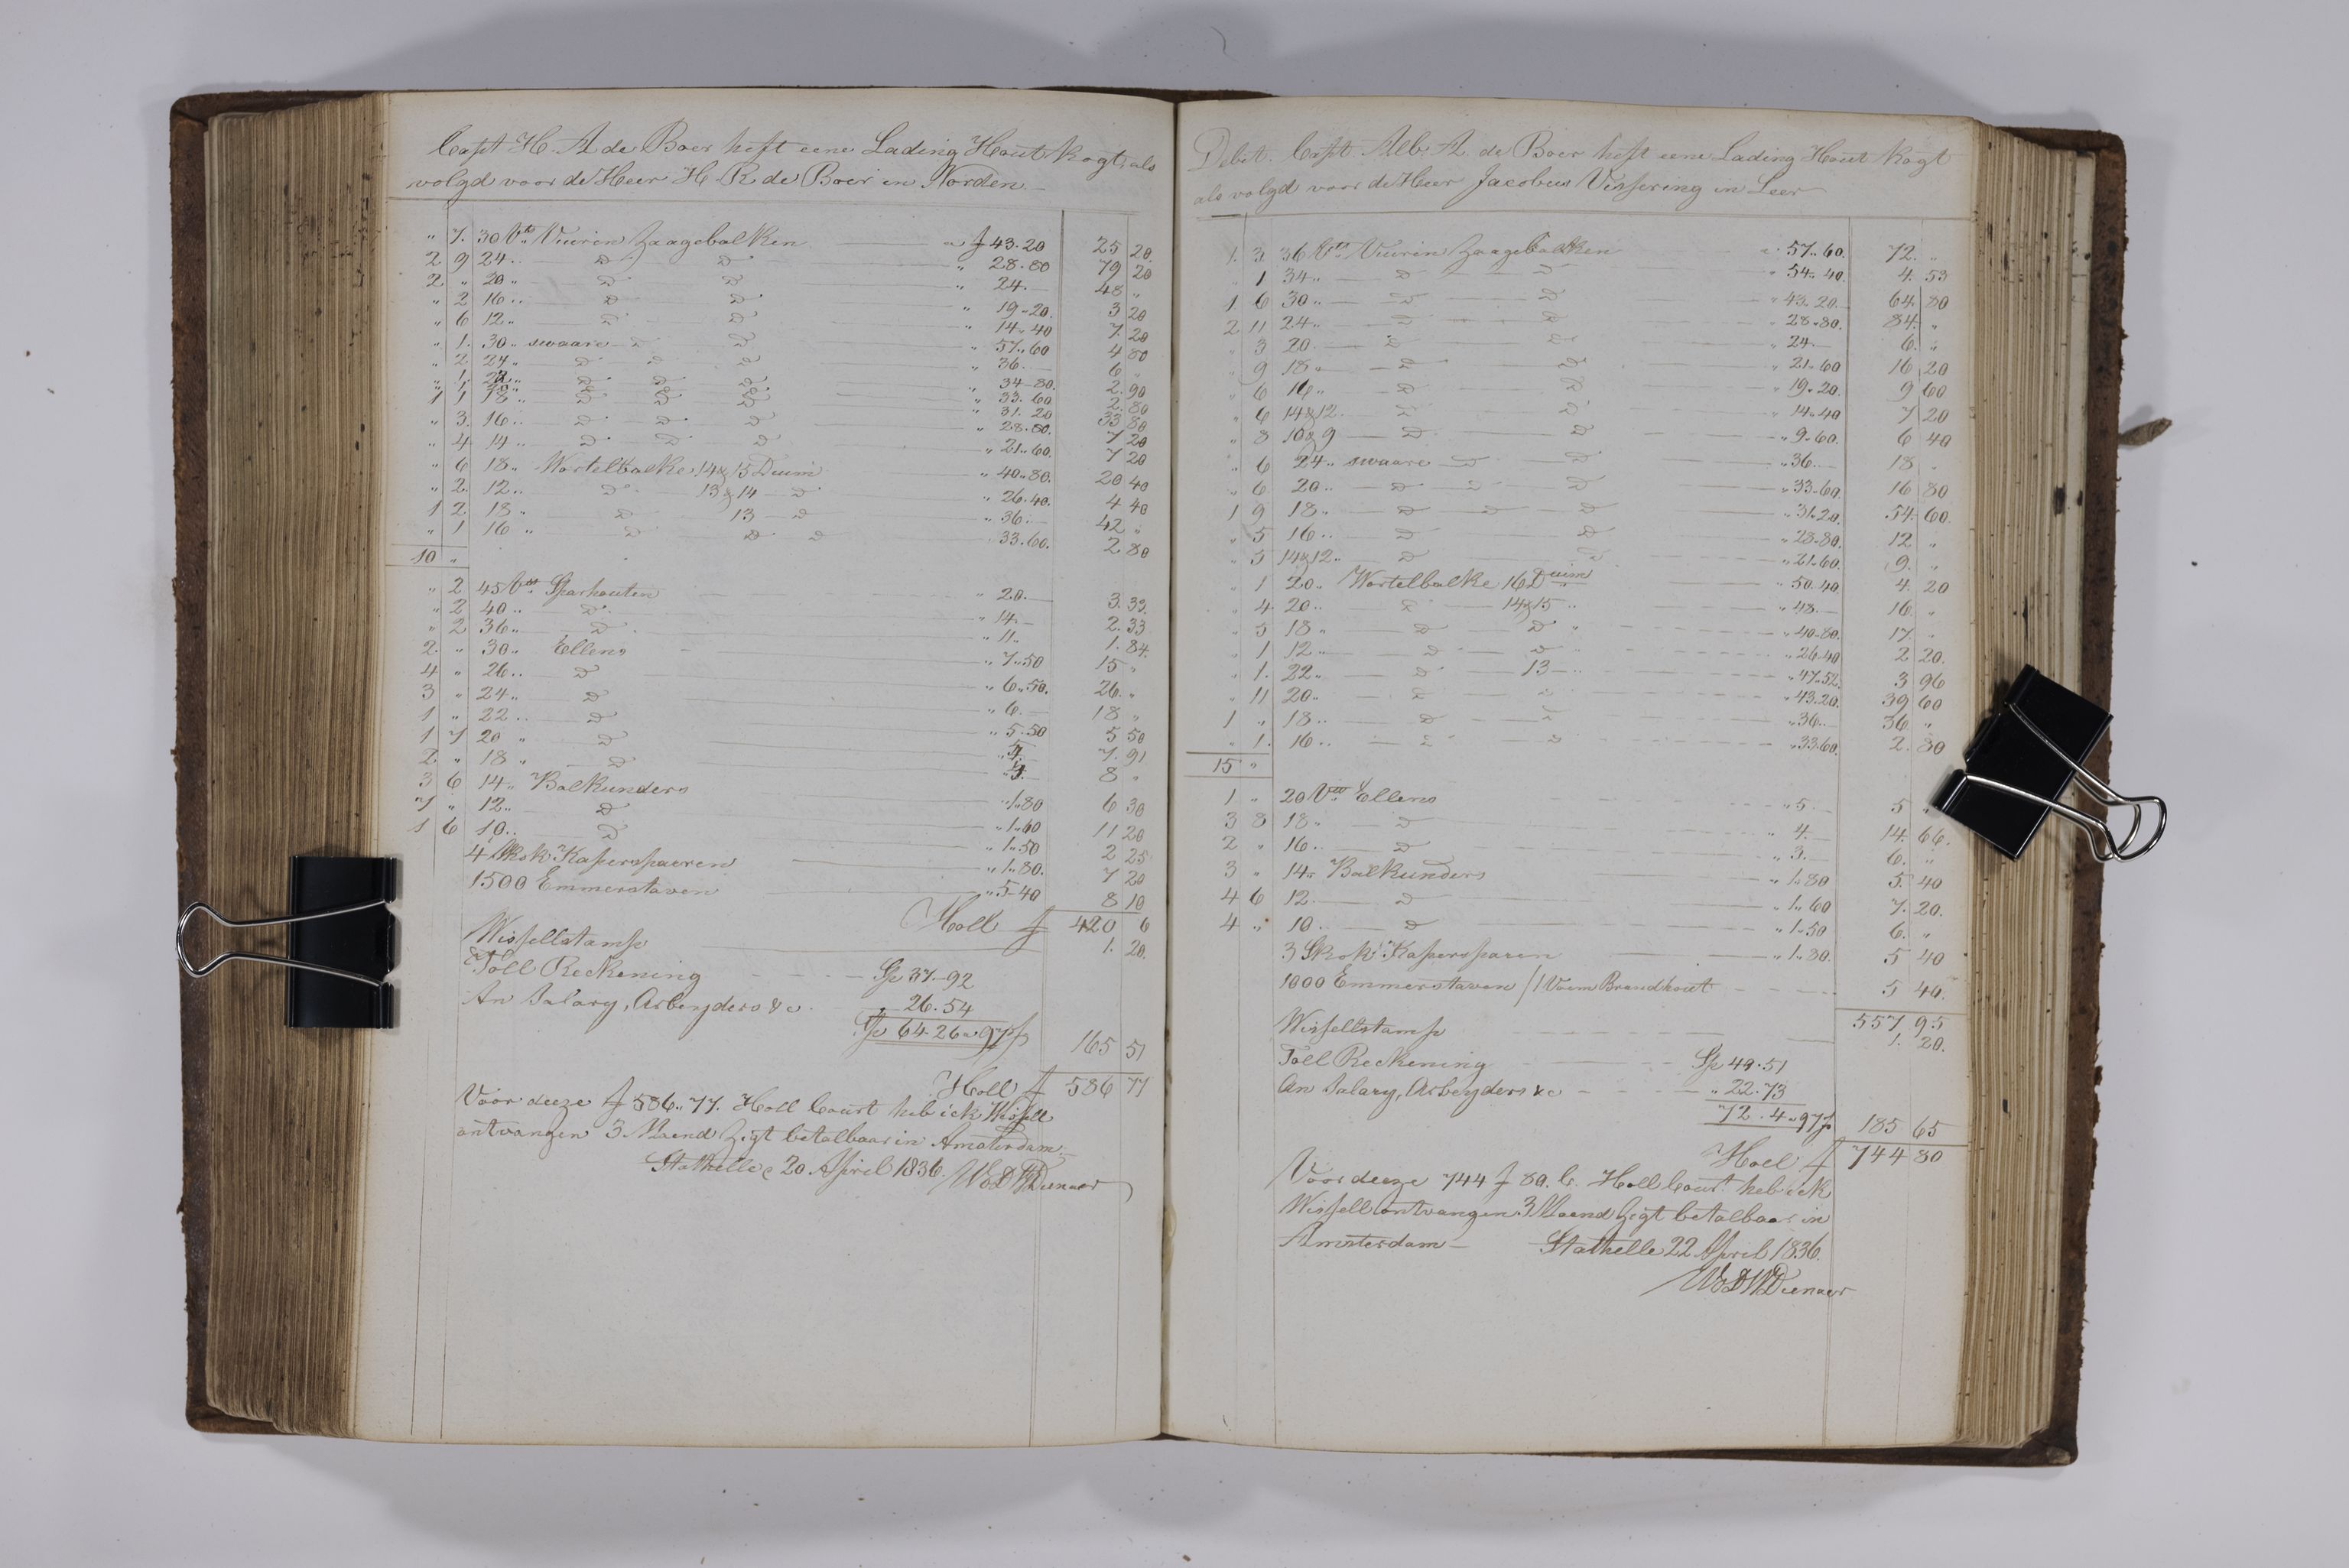 Capt H. A de Boer heft eene Lading Hout kogt als
volgd voor de Heer H. R de Boer in Norden
„ 7. 30 Vt Vuurin Zaagebalken " f 43.20 25 20.
2 9 24 „ D D „ 28.80 79 20
2 „ 20 „ D D „ 24.— 48 „
„ 2 16 „ D D „ 19.20. 3 20
„ 6 12 „ D D „ 14.40 7. 20
„ 1. 30 „ swaare D D „ 57.60 4 80
„ 2. 24 „ D D D „ 36.— 6 „
„ 1. 22 „ D D D „ 34.80. 2. 90
„ 1 20 „ D D D „ 33.60 2. 80
1 1 18 „ D D D „ 31.20 33 80
„ 3. 16 „ D D D „ 28.80. 7 20
„ 4 14 „ D D D „ 21.60. 7 20
„ 6 18 „ Wortelbalke 14 & 15 Duim „ 40.80. 20 40
„ 2. 12 „ D 13 & 14 D „ 26.40. 4 40
1 2. 18 „ D 13 D „ 36.— 42 „
„ 1 16 „ D D D 33.60. 2 80
10 „
„ 2 45 Vt Sparhouten „ 20.— 3. 33.
„ 2 40 „ D „ 14.— 2. 33
„ 2 36 „ D „ 11. 1. 84.
2. „ 30 „ Ellens „ 7.50 15 „
4 „ 26 „ D „ 6.50. 26. „
3 „ 24 „ D „ 6.— 18 „
1 „ 22 „ D „ 5.50 5 50
1 7 20 „ D „ 5.— 7. 91
2. „ 18 „ D „ 4.— 8 „
3 6 14 „ Balkunders „ 1.80 6 30
7 „ 12 „ D „ 1.60 11 20
1 6 10 „ D „ 1.50 2 25
4 Skok Kaperspaeren „ 1.80. 7 20
1500 Emmerstaven „ 5.40 8 10
Holl f 420 6
Wissellstamp 1. 20.
Toll Reckening Sp 37.92
An Salary, Arbeyders & c. 26.54
Sp 64.26 a 97 165 51
Holl f 586 77
Voor deeze f 586.. 77. Holl Court heb ick Wissell
ontvangen 3 Maend Zigt betalbaar in Amsterdam
Stathelle 20 April 1836. Dienaer
Debet. Capt Alb. A. de Boer heft eene Lading Hout kogt
als volgd voor de Heer Jacobus Vissering in Leer
1. 3 36 Vt Vuurin Zaagebalken „ 57.60. 72. „
„ 1 34 „ D D „ 54.40. 4. 53
1 6 30 „ D D „ 43.20. 64. 80
2 11 24 „ D D „ 28.80. 84. „
„ 3 20. D D „ 24.— 6. „
„ 9 18 „ D D „ 21.60 16 20
„ 6 16 „ D D „ 19.20. 9 60
„ 6 14 & 12. D D „ 14.40 7 20
„ 8 10 & 9 D D „ 9.60. 6 40
„ 6 24 „ swaare D D „ 36.— 18 „
„ 6 20 „ D D D „ 33.60. 16 80
1 9 18 „ D D D „ 31.20. 54. 60
„ 5 16 „ D D „ 28.80. 12 „
„ 5 14 & 12 „ D D „ 21.60. 9. „
„ 1 20 „ Wortelbalke 16 Duim „ 50.40. 4. 20
„ 4 20 „ D 14 & 15 „ „ 48.— 16. „
„ 5 18 „ D D „ „ 40.80. 17. „
„ 1 12 „ D D „ 26.40 2 20.
„ 1. 22 „ D 13 „ 47.52. 3 96
„ 11 20 „ D „ 43.20. 39 60
1 „ 18 „ D „ 36.— 36 „
„ 1. 16 „ D „ 33.60. 2. 80
15 „
1 „ 20 Vt Ellens „ 5.— 5 „
3 8 18 „ D „ 4.— 14. 66.
2 „ 16 „ D „ 3.— 6. „
3 „ 14 „ Balkunders „ 1.80 5. 40
4 6 12. D „ 1.60 7. 20.
4 „ 10. D „ 1.50 6. „
3 Skok Kapersparen „ 1.80. 5 40
1000 Emmerstaven / 1 Vaem Brandhout 5 40.
557 95
Wissellstamp 1. 20.
Toll Reckening Sp 49.51
An Salary, Arbeyders & c „ 22.73
72. 4 a 97 185 65
Holl f 744 80
Voor deeze 744 f 80. C. Holl Court heb ick
Wissell ontvangen 3 Maend Zigt betalbaar in
Amsterdam — Stathelle 22 April 1836.
Dienaer